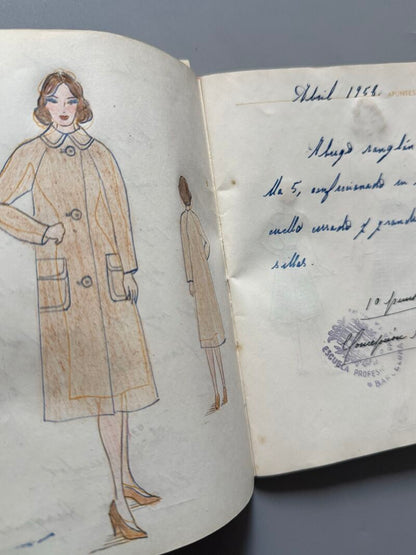 Abril 1958. APUNTES
Abrigo ranglán
lla 5, confeccionado en
cuello cerrado y grande
sillos.
1º
Concepción
ESCUELA PROFES
BARCELONA